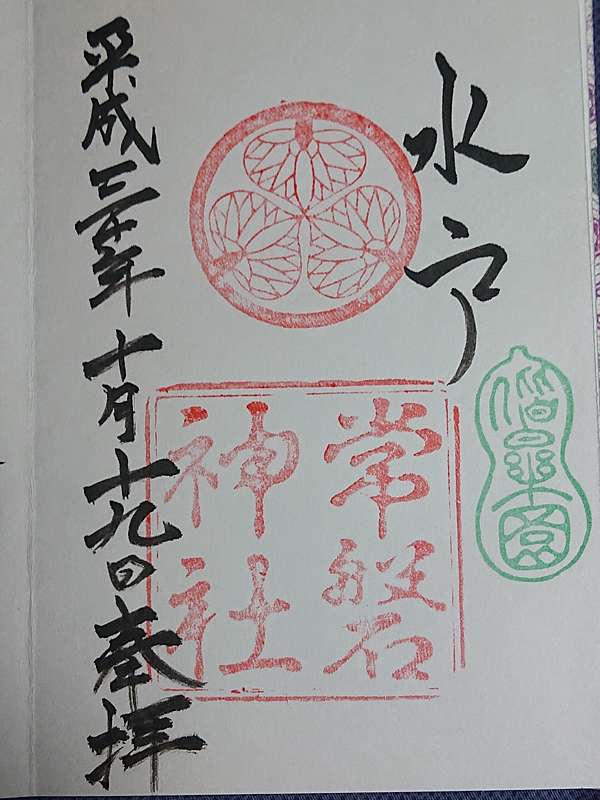 水戸
偕楽園
常磐
神社
平成三十年十月十九日奉拝